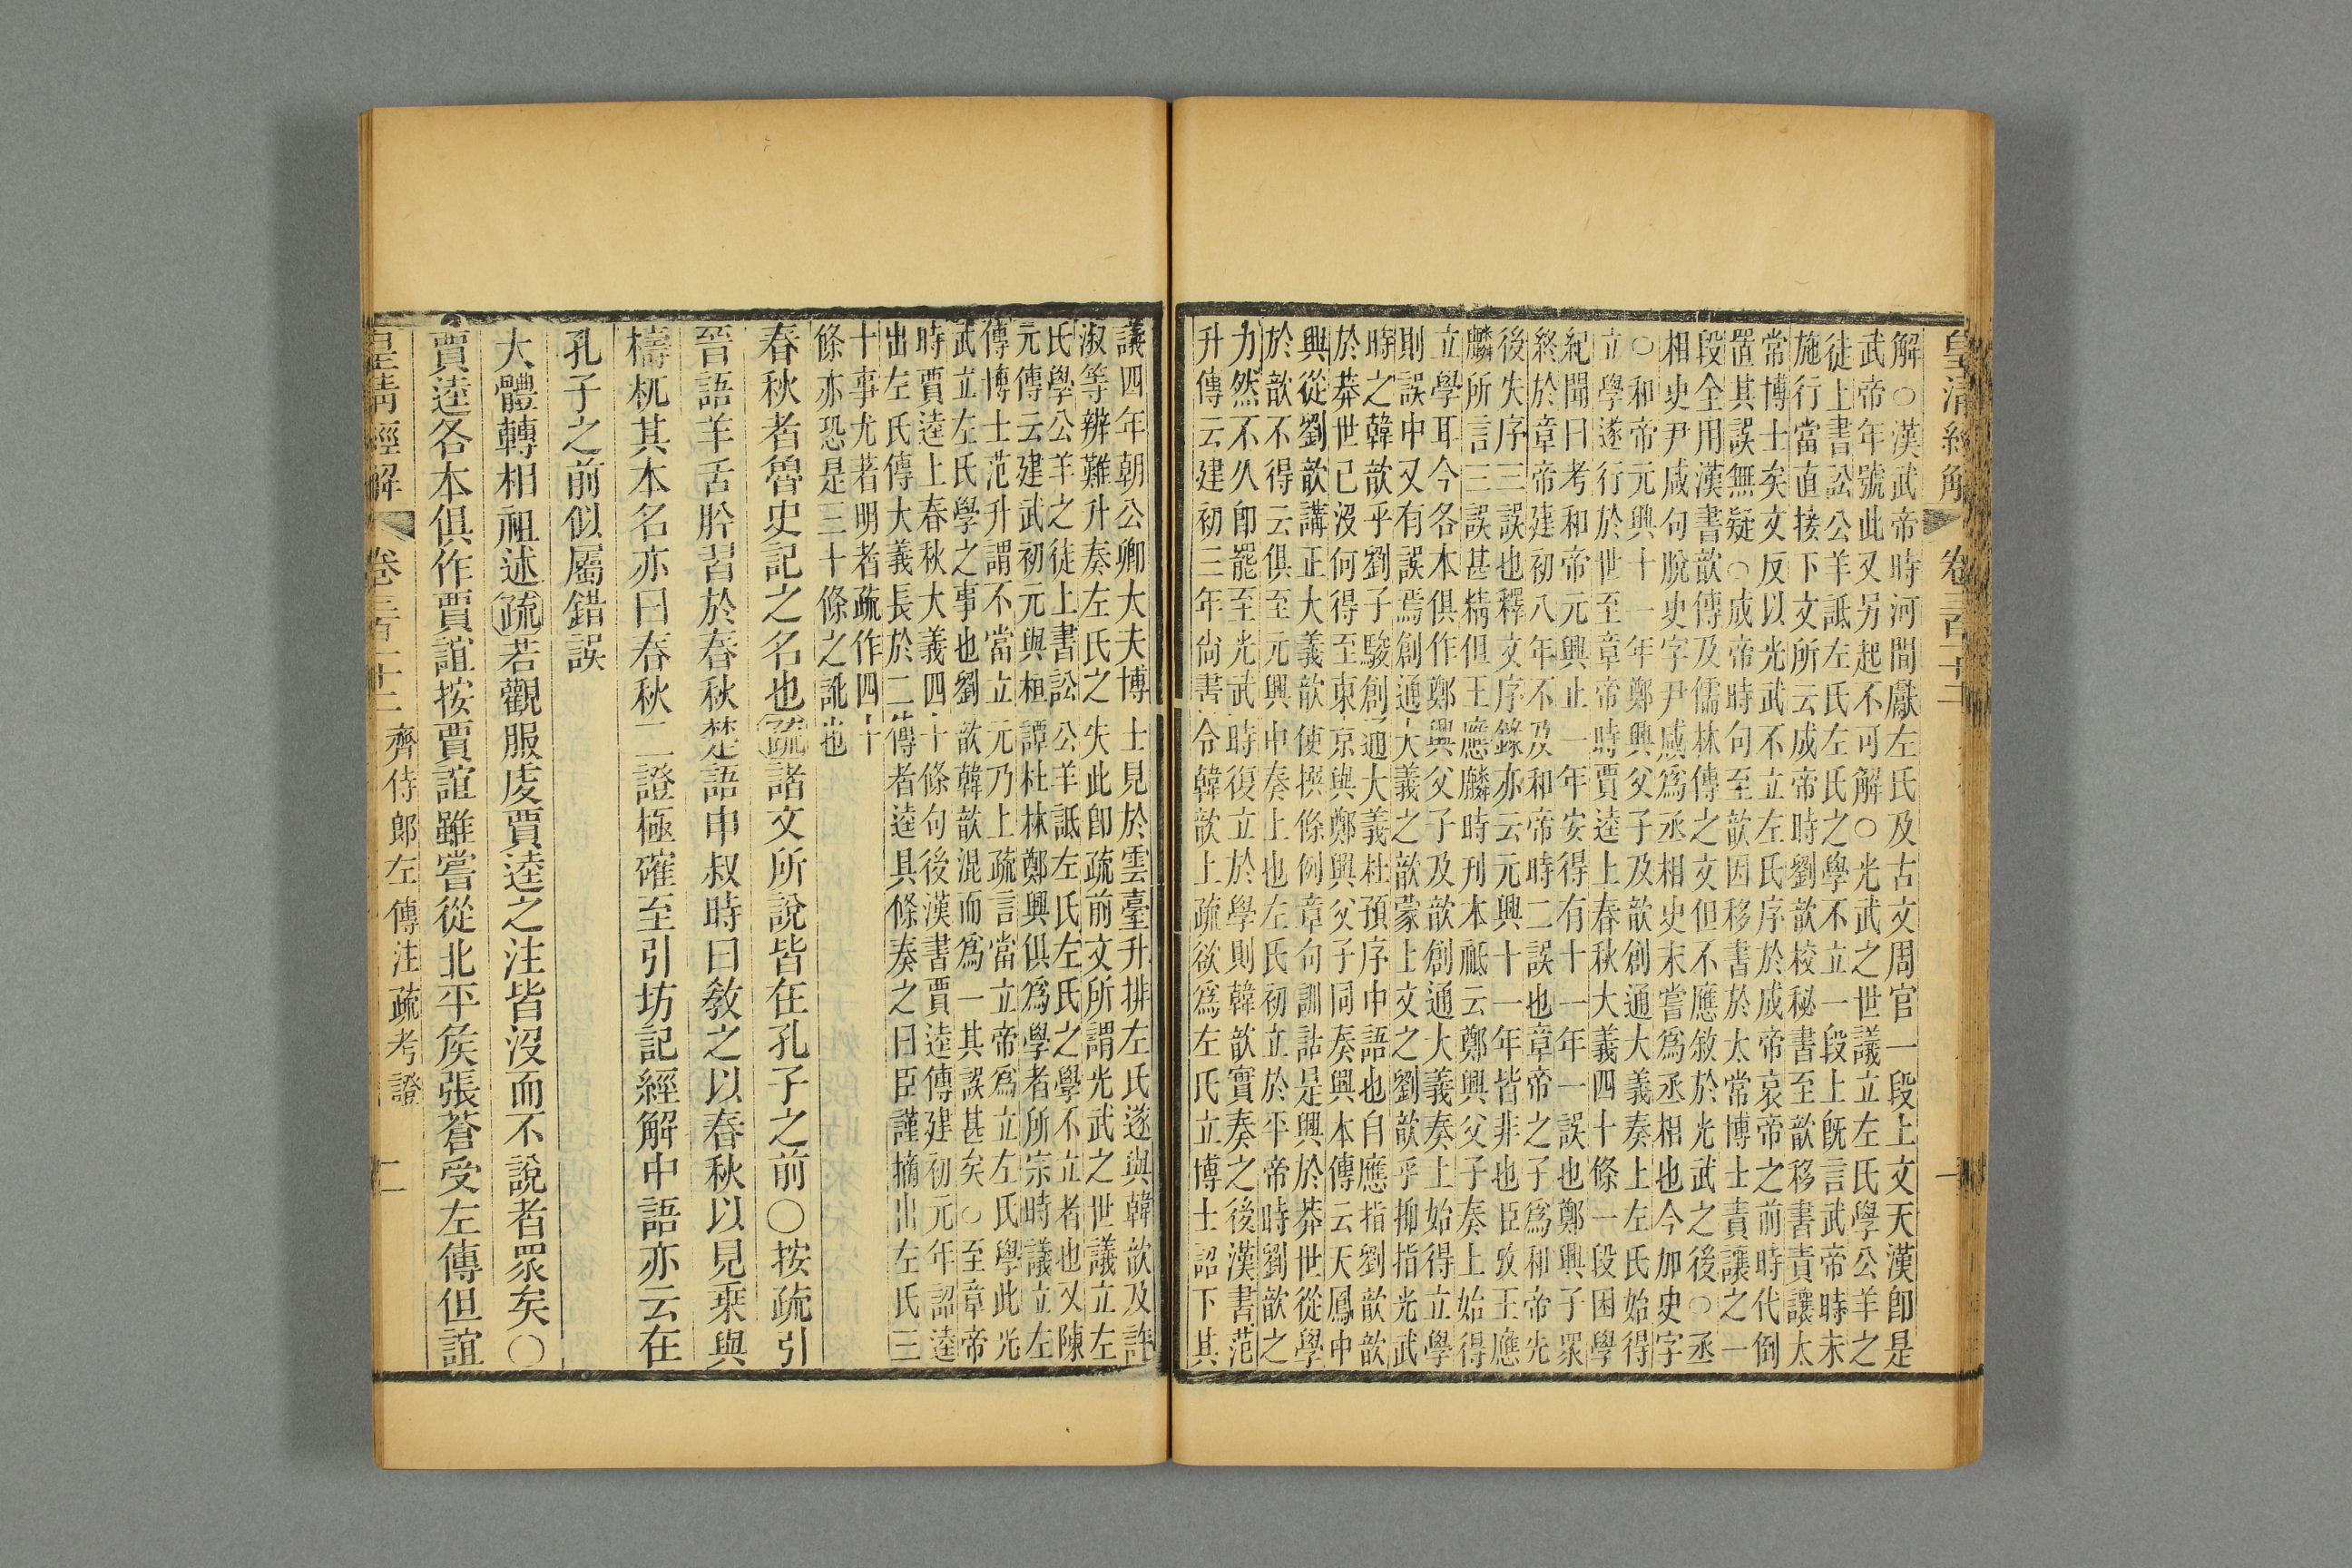 皇清經解 卷三百十二 一
解○漢武帝時河間獻左氏及古文周官一段上文天漢即是
武帝年號此又另起不可解○光武之世議立左氏學公羊之
徒上書訟公羊詆左氏左氏之學不立一段上既言武帝時未
施行當直接下文所云成帝時劉歆校秘書至歆移書責讓太
常博士矣文反以光武不立左氏序於成帝哀帝之前時代倒
置其誤無疑○成帝時句至歆因移書於太常博士責讓之一
段全用漢書歆傳及儒林傳之文但不應敘於光武之後○丞
相史尹咸句脫史字尹咸為丞相史末嘗為丞相也今加史字
○和帝元興十一年鄭興父子及歆創通大義奏上左氏始得
立學遂行於世至章帝時賈逵上春秋大義四十條一段困學
紀聞曰考和帝元興止一年安得有十一年一誤也鄭興子眾
終於章帝建初八年不及和帝時二誤也章帝之子為和帝先
後失序三誤也釋文序錄亦云元興十一年皆非也臣攷王應
麟所言三誤甚精但王應麟時刊本祗云鄭興父子奏上始得
立學耳今各本俱作鄭興父子及歆創通大義奏上始得立學
則誤中又有誤焉創通大義之歆蒙上文之劉歆乎抑指光武
時之韓歆乎劉子駿創通大義杜預序中語也自應指劉歆歆
於莽世已沒何得至東京與鄭興父子同奏興本傳云天鳳中
興從劉歆講正大義歆使撰條例章句訓詁是興於莽世從學
於歆不得云俱至元興中奏上也左氏初立於平帝時劉歆之
力然不久卽罷至光武時復立於學則韓歆實奏之後漢書范
升傳云建初三年尚書令韓歆上疏欲為左氏立博士詔下其
議四年朝公卿大夫博士見於雲臺升排左氏遂與韓歆及許
淑等辨難升奏左氏之失此卽疏前文所謂光武之世議立左
氏學公羊之徒上書訟公羊詆左氏左氏之學不立者也又陳
元傳云建武初元與桓譚杜林鄭興俱為學者所宗時議立左
傳博士范升謂不當立元乃上疏言當立帝為立左氏學此光
武立左氏學之事也劉歆韓歆混而為一其誤甚矣○至章帝
時賈逵上春秋大義四十條句後漢書賈逵傳建初元年詔逵
出左氏傳大義長於二傳者逵具條奏之曰臣謹摘出左氏三
十事尤若明者疏作四十
條亦恐是三十條之訛也
春秋者魯史記之名也疏諸文所說皆在孔子之前○按疏引
晉語羊舌肸習於春秋楚語申叔時曰敎之以春秋以見乘與
檮杌其本名亦曰春秋二證極確至引坊記經解中語亦云在
孔子之前似屬錯誤
大體轉相祖述疏若觀服虔賈逵之注皆沒而不說者眾矣○
賈逵各本俱作賈誼按賈誼雖嘗從北平侯張蒼受左傳但誼
皇清經解 卷三百十二 齊侍郎左傳注疏考證 二